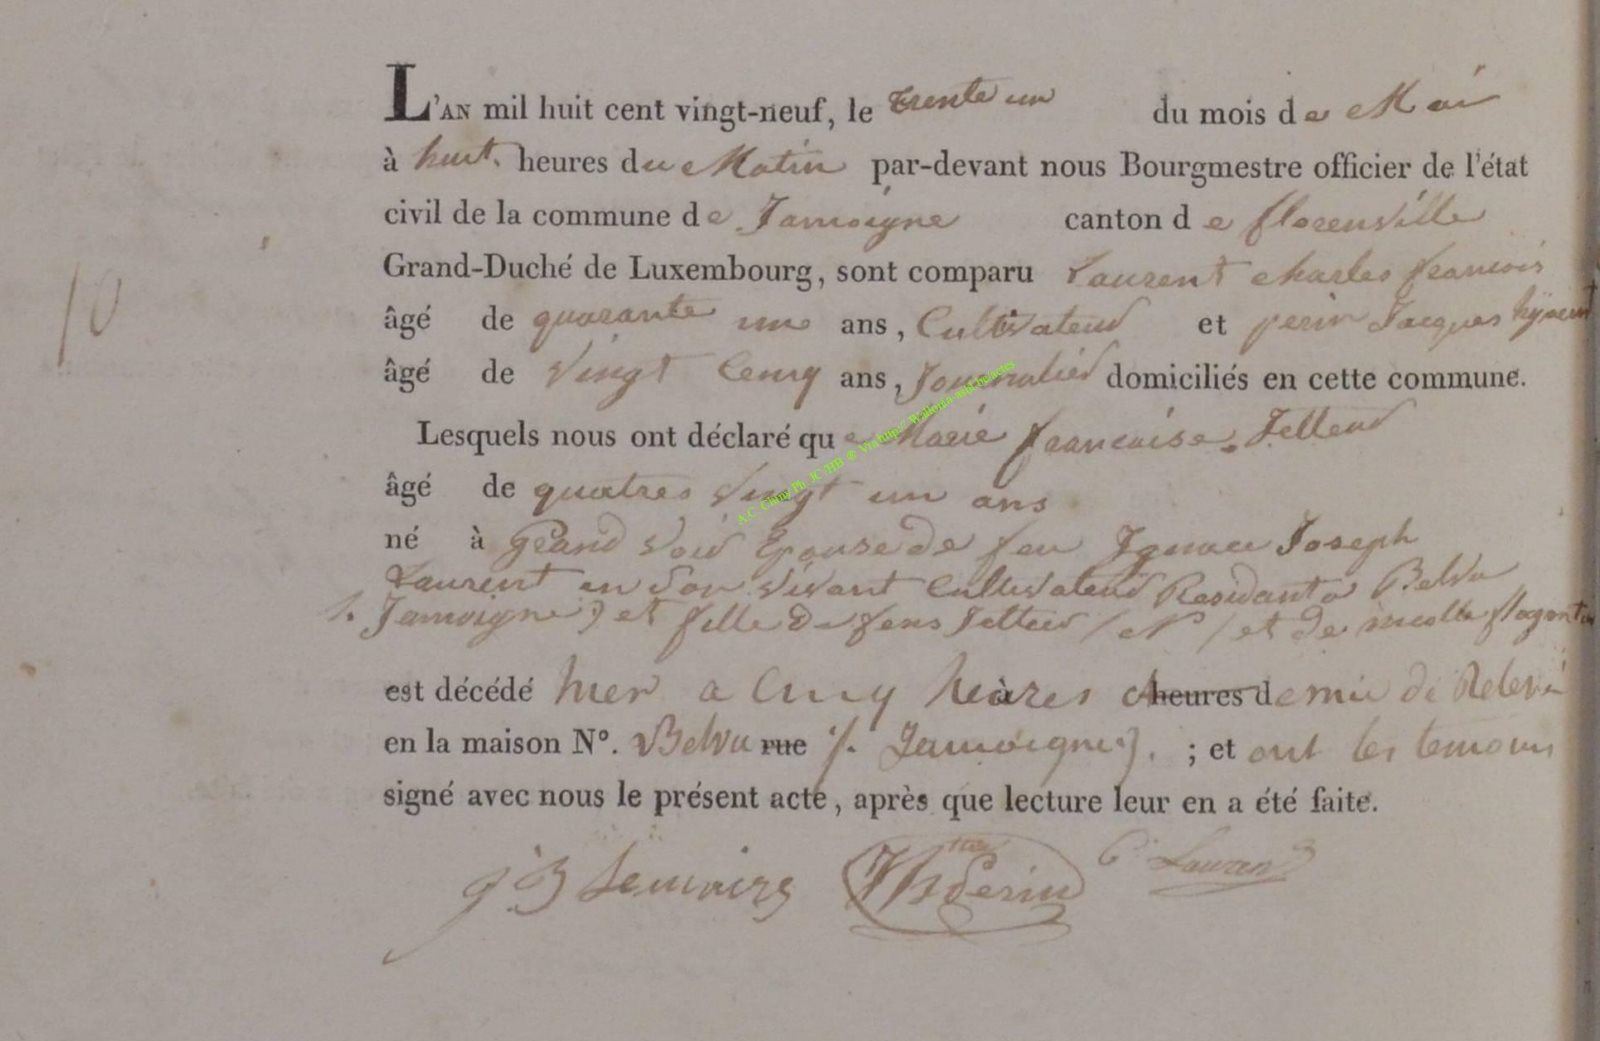 L'AN mil huit cent vingt-neuf, le trente un du mois de Mai
à huit heures du Matin par-devant nous Bourgmestre officier de l'état
civil de la commune de Jamoigne canton de florenville
Grand-Duché de Luxembourg, sont comparu Laurent charles francois
10
âgé de quarante un ans, Cultivateur et perin Jacques hÿacint
âgé de vingt Cenq ans, Journalier domiciliés en cette commune.
Lesquels nous ont déclaré que Marie francaise Jelleur
âgé de quatres vingt un ans
né à Grand Voir Epouse de feu Ignace Joseph
Laurent en son vivant Cultivateur Residant a Belvu
Jamoigne) et fille de feus et de
est décédé hier a Cinq heures à heures demie de Relevé
en la maison N°. Belvu rue Jamoigne). ; et ont les temoins
signé avec nous le présent acte, après que lecture leur en a été faite.
J B Lemaire Perin C Laurent